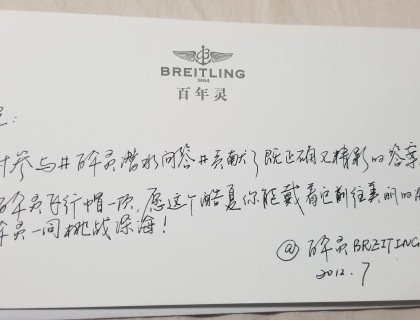 BREITLING
1884
百年灵
:
参与#百年灵潜水问答#贡献了既正确又精彩的答案
百年灵飞行帽一顶，愿这个酷夏你能戴着它前往美丽的
年灵一同挑战深海！
@百年灵BREITING
2012.7